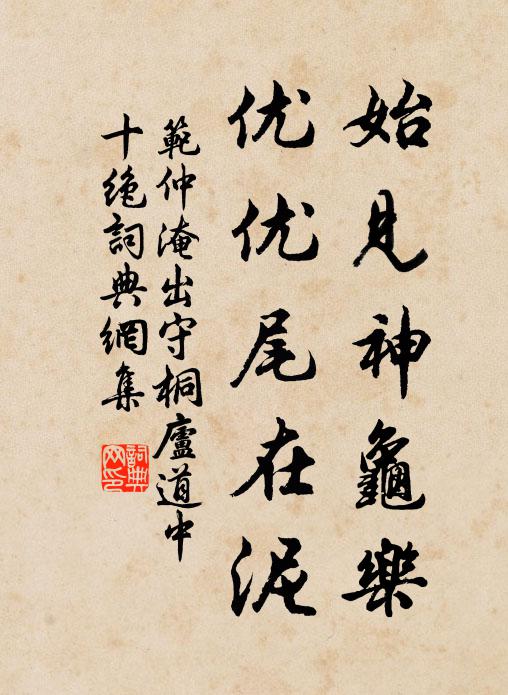 始見神龜樂
优优尾在泥
範仲淹出守桐廬道中
十绝詞典網集
詞典网印